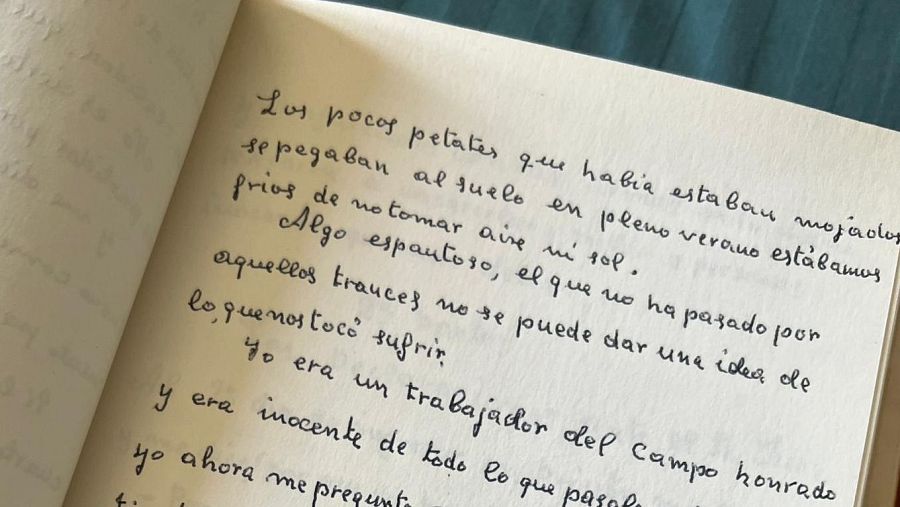 Los pocos petates que había estaban mojados
se pegaban al suelo en pleno verano estábamos
frios de no tomar aire ni sol.
Algo espantoso, el que no ha pasado por
aquellos trances no se puede dar una idea de
lo, que nos tocó sufrir.
yo era un trabajador del Campo honrado
y era inocente de todo lo que
yo ahora me